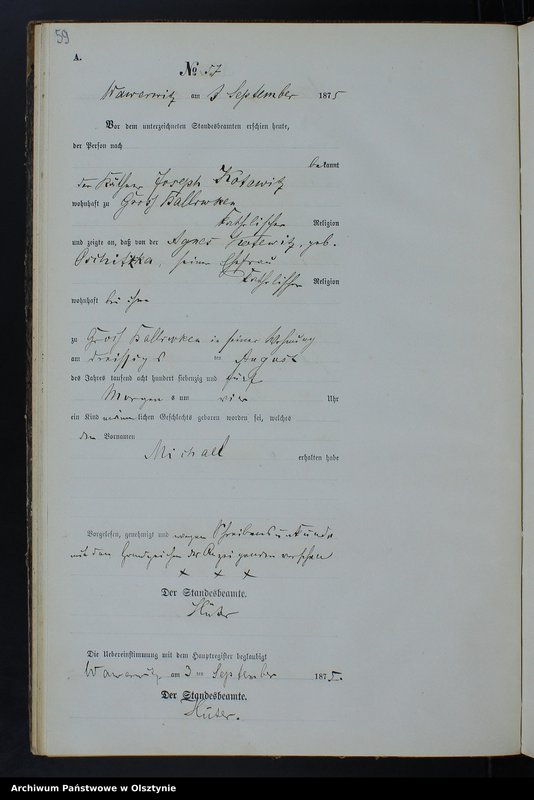 59
A.
№ 57
Wawerwitz am 3 September 1875
Vor dem unterzeichneten Standesbeamten erschien heute,
der Person nach
bekannt
der Käthner Joseph Kotewitz
wohnhaft zu Groß Balowken
katholischer Religion
und zeigte an, daß von der Agnes Kotewitz, geb.
seiner Ehefrau
katholischer Religion
wohnhaft bei ihm
zu Groß Balowken in seiner Wohnung
am dreißigst ten August
des Jahres tausend acht hundert siebenzig und fünf
Morgens um vier Uhr
ein Kind männlichen Geschlechts geboren worden sei, welches
den Vornamen
Michael
erhalten habe
Vorgelesen, genehmigt und wegen Schreibensunkunde
mit den Handzeichen des Anzeigenden versehen
x x x
Der Standesbeamte.
Hüter
Die Uebereinstimmung mit dem Hauptregister beglaubigt
am 3 ten September 1875.
Der Standesbeamte.
Hüter.
Archiwum Państwowe w Olsztynie